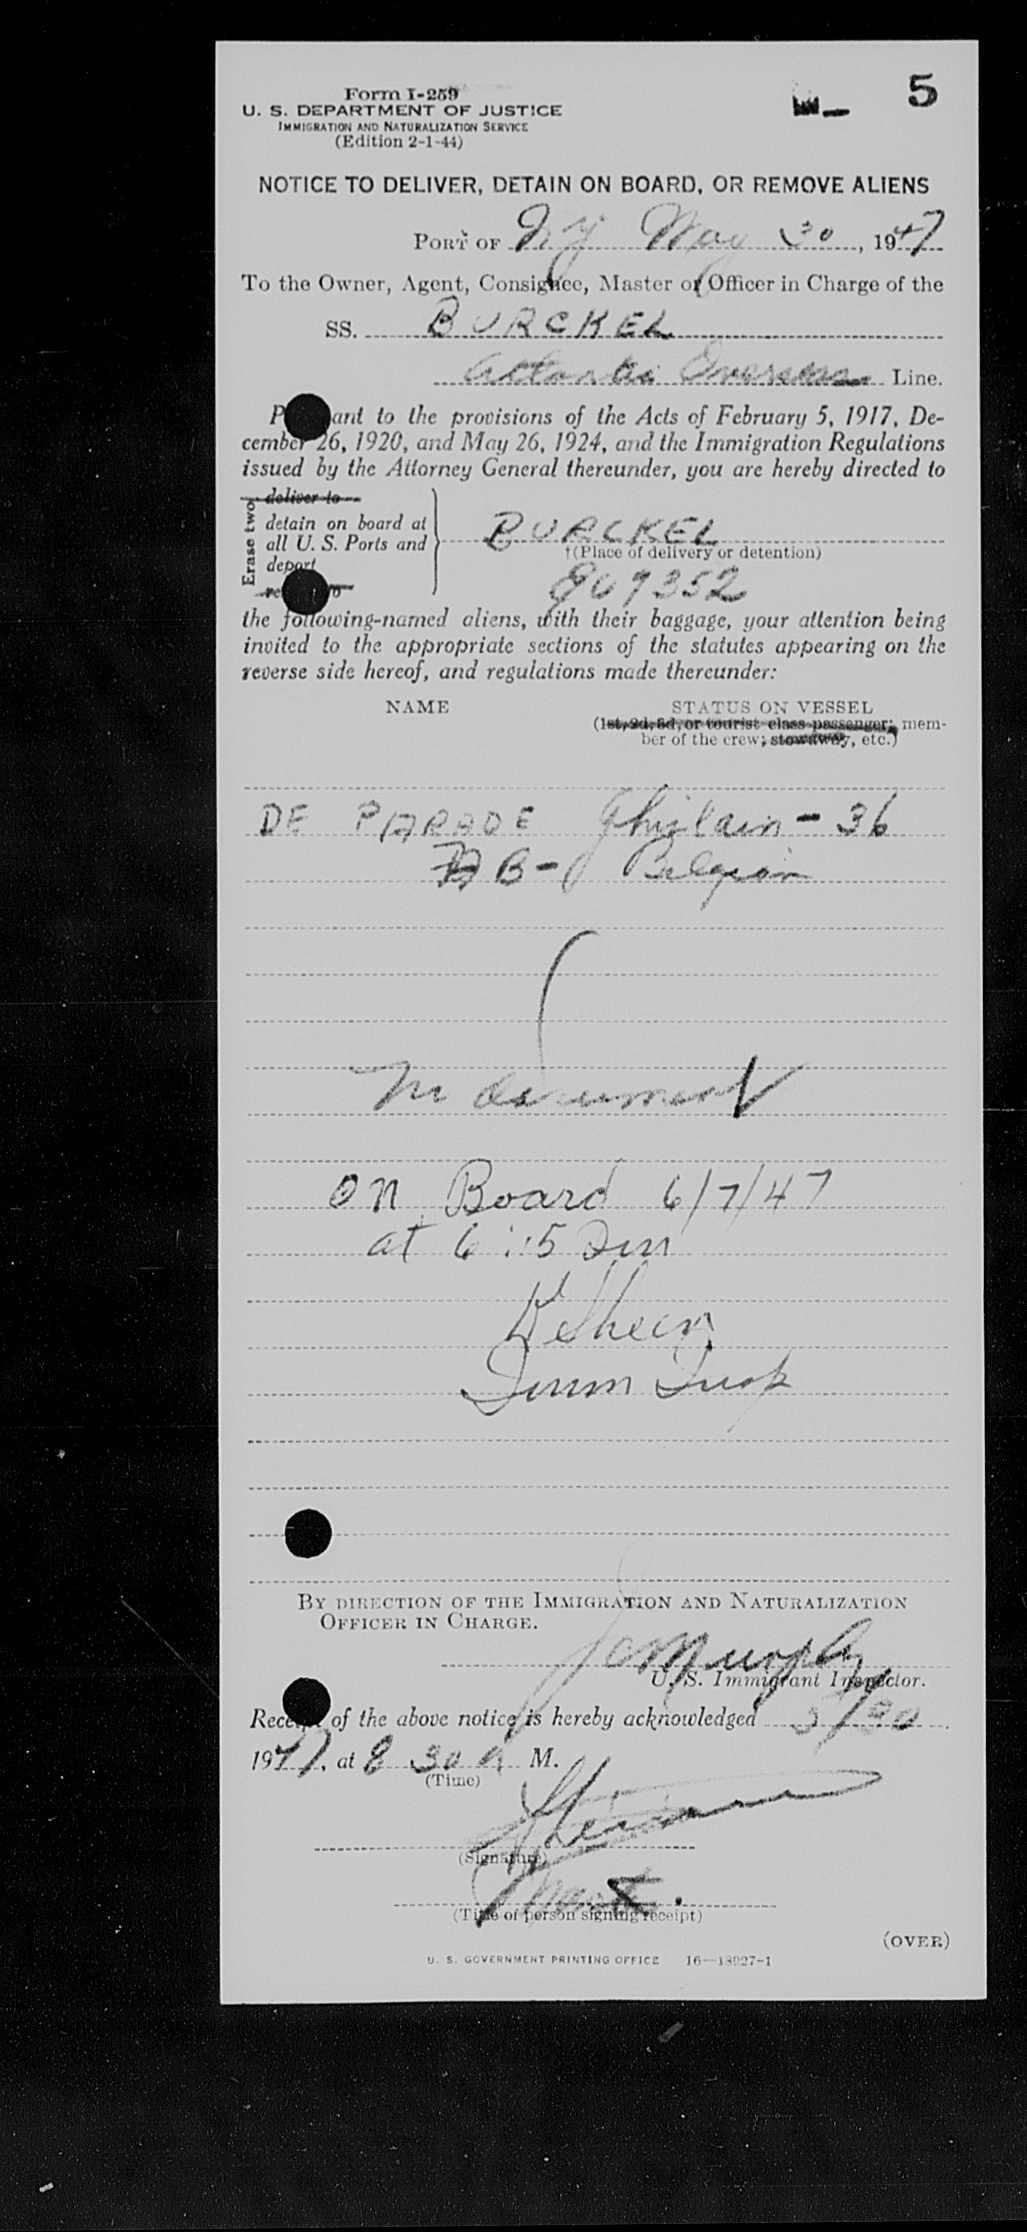 Form I-259
5
U. S. DEPARTMENT OF JUSTICE
IMMIGRATION AND NATURALIZATION SERVICE
(Edition 2-1-44)
NOTICE TO DELIVER, DETAIN ON BOARD, OR REMOVE ALIENS
PORT OF N Y May 30, 1947
To the Owner, Agent, Consignee, Master or Officer in Charge of the
SS. BURCKEL
Atlantic Overseas Line.
ant to the provisions of the Acts of February 5, 1917, De-
cember 26, 1920, and May 26, 1924, and the Immigration Regulations
issued by the Attorney General thereunder, you are hereby directed to
Erase two
deliver to
detain on board at
all U. S. Ports and
deport
BURCKEL
†(Place of delivery or detention)
809352
the following-named aliens, with their baggage, your attention being
invited to the appropriate sections of the statutes appearing on the
reverse side hereof, and regulations made thereunder:
NAME
STATUS ON VESSEL
(1st, 2d, 3d, or tourist class passenger; mem-
ber of the crew; stowaway, etc.)
DE PARADE Ghislain - 36
B - Belgian
no document
ON Board 6/7/47
at 6:15
BY DIRECTION OF THE IMMIGRATION AND NATURALIZATION
OFFICER IN CHARGE.
Murphy
U. S. Immigrant Inspector.
Receipt of the above notice is hereby acknowledged 5/30
1947, at 8 30 A M.
(Time)
(Signature)
(Title of person signing receipt)
(OVER)
U. S. GOVERNMENT PRINTING OFFICE 16—18927-1